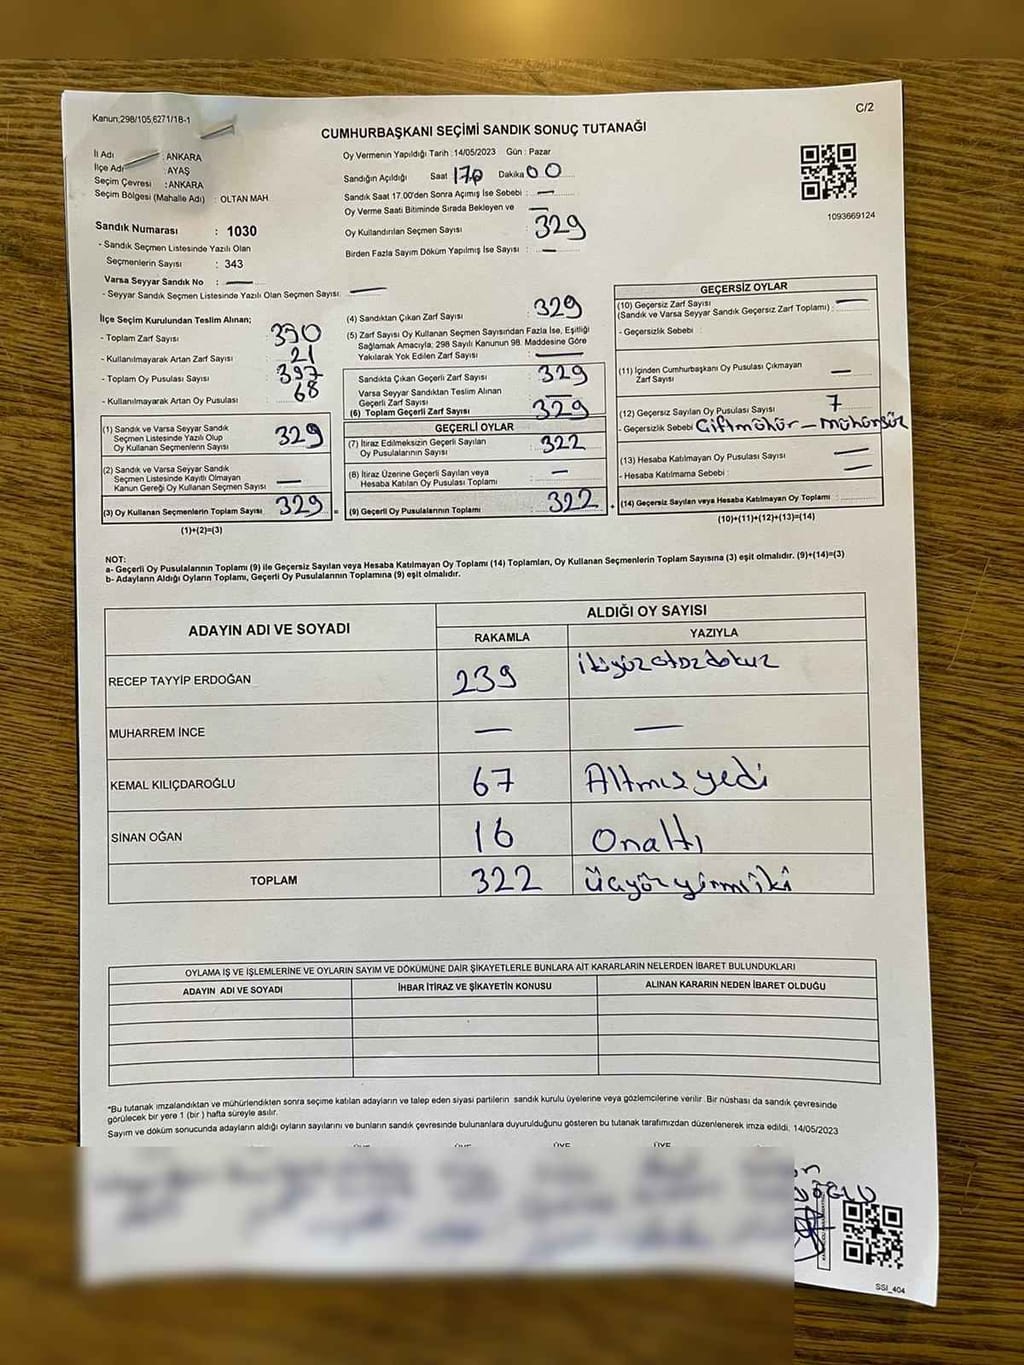 Kanun;298/105,6271/18-1
C/2
CUMHURBAŞKANI SEÇİMİ SANDIK SONUÇ TUTANAĞI
İl Adı : ANKARA
İlçe Adı : AYAŞ
Seçim Çevresi : ANKARA
Seçim Bölgesi (Mahalle Adı) : OLTAN MAH
Sandık Numarası : 1030
- Sandık Seçmen Listesinde Yazılı Olan
Seçmenlerin Sayısı : 343
Varsa Seyyar Sandık No : —
- Seyyar Sandık Seçmen Listesinde Yazılı Olan Seçmen Sayısı: —
Oy Vermenin Yapıldığı Tarih : 14/05/2023 Gün : Pazar
Sandığın Açıldığı Saat 17 Dakika 00
Sandık Saat 17.00'den Sonra Açımış İse Sebebi : —
Oy Verme Saati Bitiminde Sırada Bekleyen ve —
Oy Kullandırılan Seçmen Sayısı : 329
Birden Fazla Sayım Döküm Yapılmış İse Sayısı : —
1093669124
İlçe Seçim Kurulundan Teslim Alınan;
- Toplam Zarf Sayısı : 350
- Kullanılmayarak Artan Zarf Sayısı : 21
- Toplam Oy Pusulası Sayısı : 397
- Kullanılmayarak Artan Oy Pusulası : 68
(1) Sandık ve Varsa Seyyar Sandık
Seçmen Listesinde Yazılı Olup
Oy Kullanan Seçmenlerin Sayısı : 329
(2) Sandık ve Varsa Seyyar Sandık
Seçmen Listesinde Kayıtlı Olmayan
Kanun Gereği Oy Kullanan Seçmen Sayısı : —
(3) Oy Kullanan Seçmenlerin Toplam Sayısı : 329
(1)+(2)=(3)
(4) Sandıktan Çıkan Zarf Sayısı : 329
(5) Zarf Sayısı Oy Kullanan Seçmen Sayısından Fazla İse, Eşitliği
Sağlamak Amacıyla; 298 Sayılı Kanunun 98. Maddesine Göre
Yakılarak Yok Edilen Zarf Sayısı : —
Sandıkta Çıkan Geçerli Zarf Sayısı : 329
Varsa Seyyar Sandıktan Teslim Alınan
Geçerli Zarf Sayısı : —
(6) Toplam Geçerli Zarf Sayısı : 329
GEÇERLİ OYLAR
(7) İtiraz Edilmeksizin Geçerli Sayılan
Oy Pusulalarının Sayısı : 322
(8) İtiraz Üzerine Geçerli Sayılan veya
Hesaba Katılan Oy Pusulası Toplamı : —
(9) Geçerli Oy Pusulalarının Toplamı : 322
GEÇERSİZ OYLAR
(10) Geçersiz Zarf Sayısı
(Sandık ve Varsa Seyyar Sandık Geçersiz Zarf Toplamı) : —
- Geçersizlik Sebebi :
(11) İçinden Cumhurbaşkanı Oy Pusulası Çıkmayan
Zarf Sayısı : —
(12) Geçersiz Sayılan Oy Pusulası Sayısı : 7
- Geçersizlik Sebebi : Çiftmühür - Mühürsüz
(13) Hesaba Katılmayan Oy Pusulası Sayısı : —
- Hesaba Katılmama Sebebi : —
(14) Geçersiz Sayılan veya Hesaba Katılmayan Oy Toplamı :
(10)+(11)+(12)+(13)=(14)
NOT:
a- Geçerli Oy Pusulalarının Toplamı (9) ile Geçersiz Sayılan veya Hesaba Katılmayan Oy Toplamı (14) Toplamları, Oy Kullanan Seçmenlerin Toplam Sayısına (3) eşit olmalıdır. (9)+(14)=(3)
b- Adayların Aldığı Oyların Toplamı, Geçerli Oy Pusulalarının Toplamına (9) eşit olmalıdır.
ADAYIN ADI VE SOYADI
ALDIĞI OY SAYISI
RAKAMLA YAZIYLA
RECEP TAYYİP ERDOĞAN 239 ikiyüzotuzdokuz
MUHARREM İNCE — —
KEMAL KILIÇDAROĞLU 67 Altmışyedi
SİNAN OĞAN 16 Onaltı
TOPLAM 322 üçyüzyirmiiki
OYLAMA İŞ VE İŞLEMLERİNE VE OYLARIN SAYIM VE DÖKÜMÜNE DAİR ŞİKAYETLERLE BUNLARA AİT KARARLARIN NELERDEN İBARET BULUNDUKLARI
ADAYIN ADI VE SOYADI İHBAR İTİRAZ VE ŞİKAYETİN KONUSU ALINAN KARARIN NEDEN İBARET OLDUĞU
"Bu tutanak imzalandıktan ve mühürlendikten sonra seçime katılan adayların ve talep eden siyasi partilerin sandık kurulu üyelerine veya gözlemcilerine verilir. Bir nüshası da sandık çevresinde
görülecek bir yere 1 (bir) hafta süreyle asılır.
Sayım ve döküm sonucunda adayların aldığı oyların sayılarını ve bunların sandık çevresinde bulunanlara duyurulduğunu gösteren bu tutanak tarafımızdan düzenlenerek imza edildi. 14/05/2023
ÜYE ÜYE ÜYE ÜYE
SSI_404